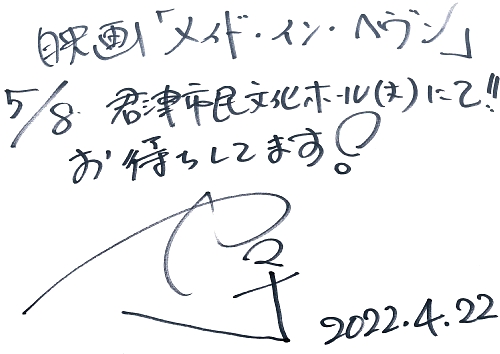 映画「メイド・イン・ヘヴン」
5/8 君津市民文化ホール(ま)にて!!
お待ちしてます!
2022.4.22